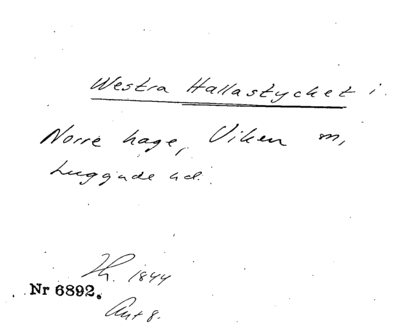 Westra Hallastycket i.
Norre hage, Viken m,
Luggude hd.
Th. 1844
Nr 6892.
Akt 8.